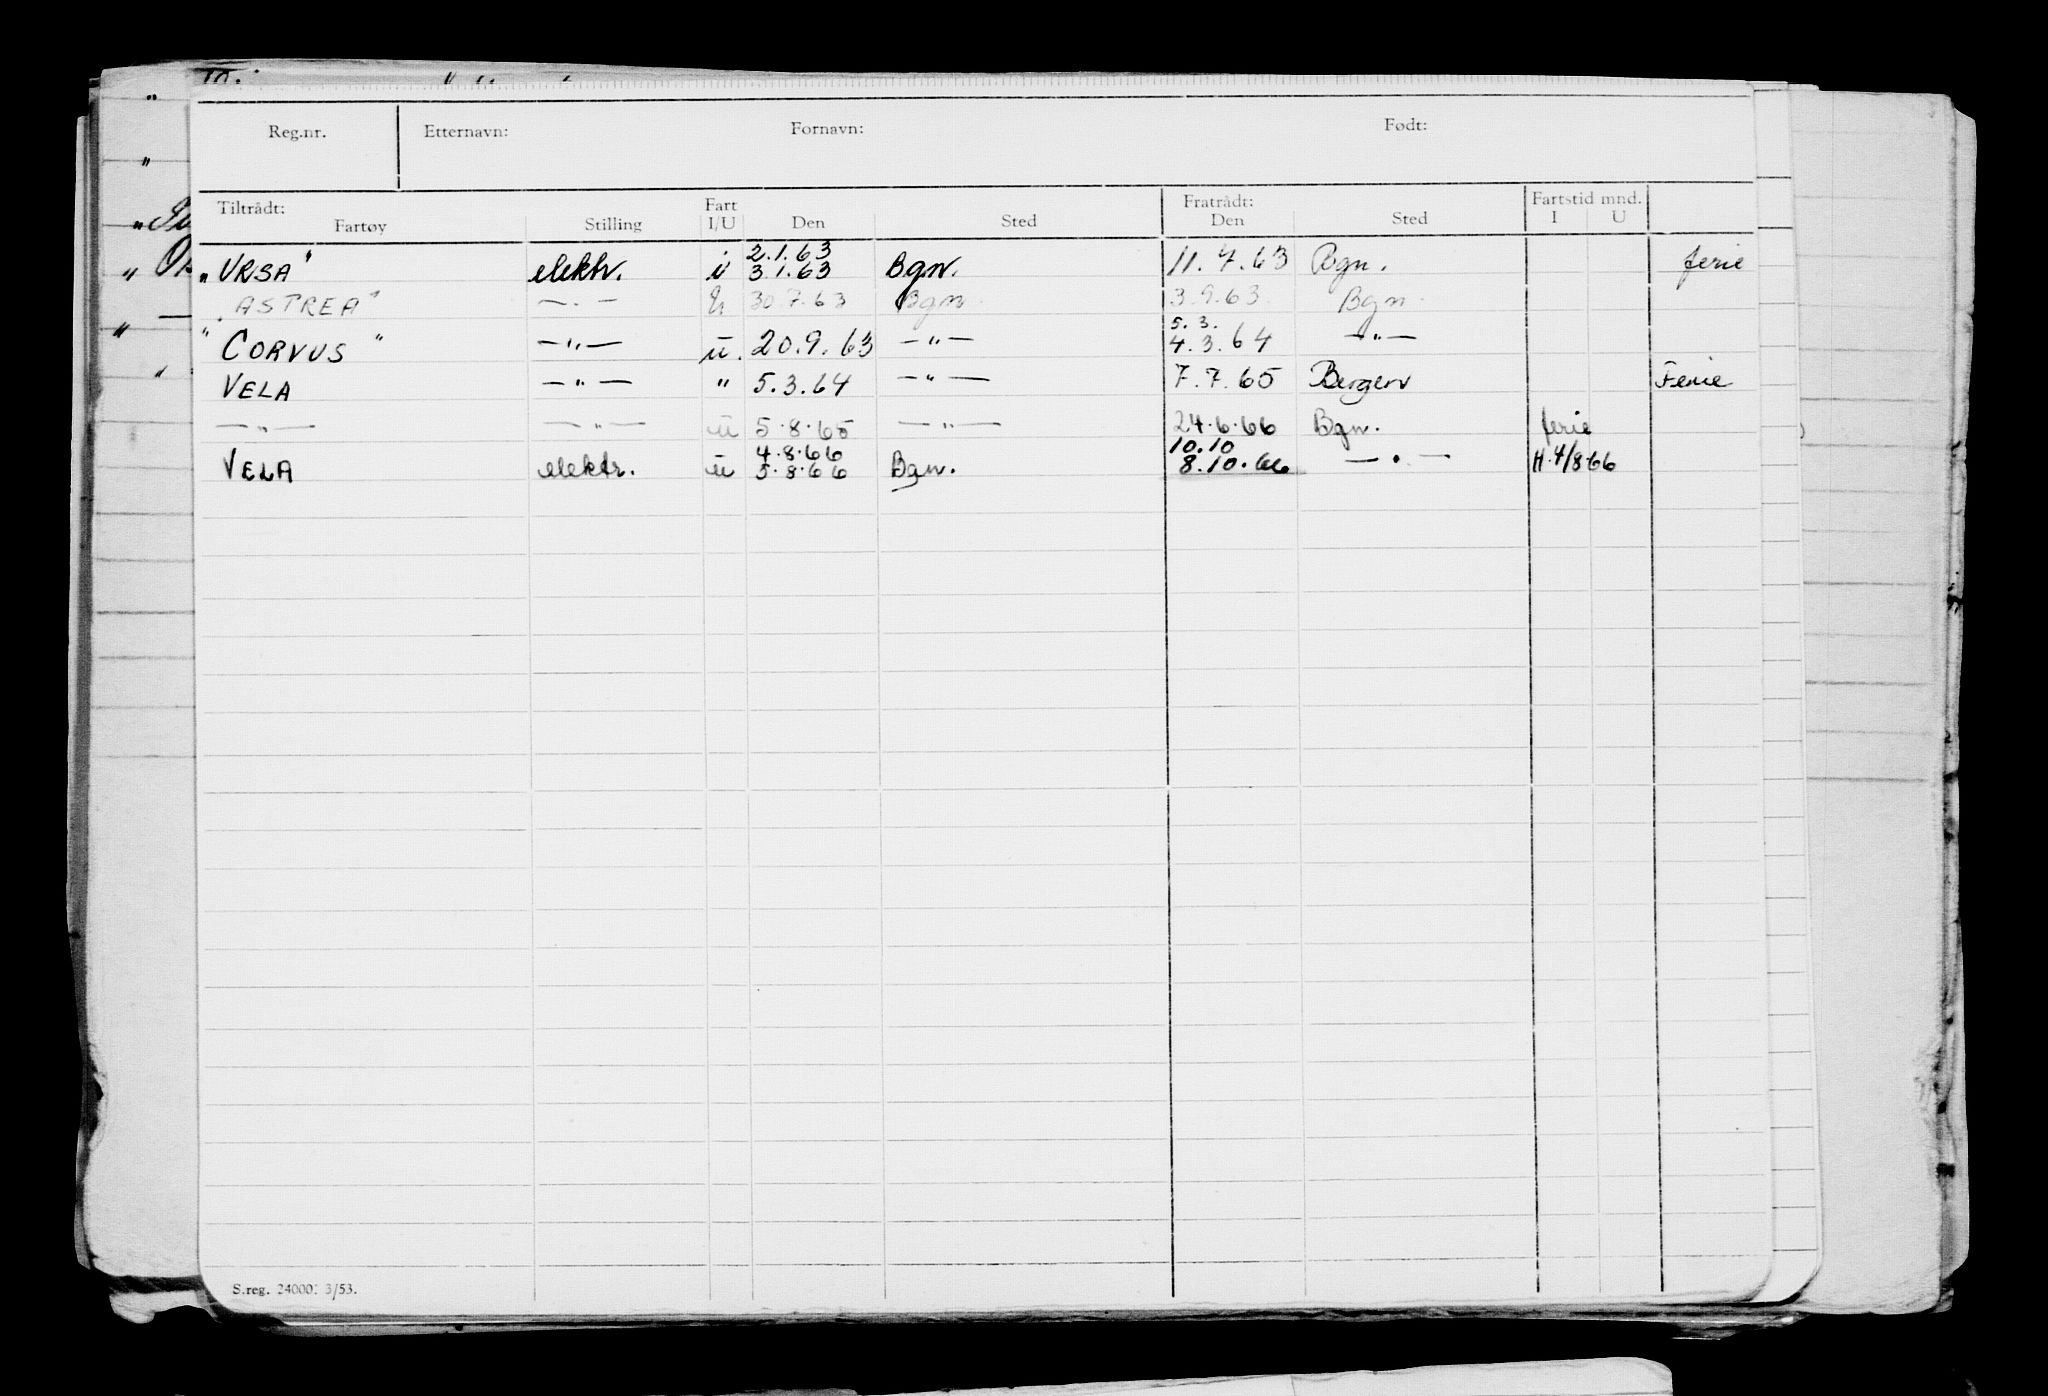 Reg.nr. Etternavn: Fornavn: Født:
Tiltrådt: Fart Fratrådt: Fartstid mnd.
Fartøy Stilling I/U Den Sted Den Sted I U
2.1.63
„URSA" elektr. i 3.1.63 Bgn. 11.7.63 Bgn. ferie
„ASTREA" —.— U 30.7.63 Bgn 3.9.63 Bgn
5.3.
"CORVUS" —"— u. 20.9.63 —"— 4.3.64 —"—
VELA —"— " 5.3.64 —"— 7.7.65 Bergen Ferie
—"— —"— u 5.8.65 —"— 24.6.66 Bgn. ferie
4.8.66 10.10
VELA elektr. u 5.8.66 Bgn. 8.10.66 —"— H.4/8.66
S.reg. 24000: 3/53.